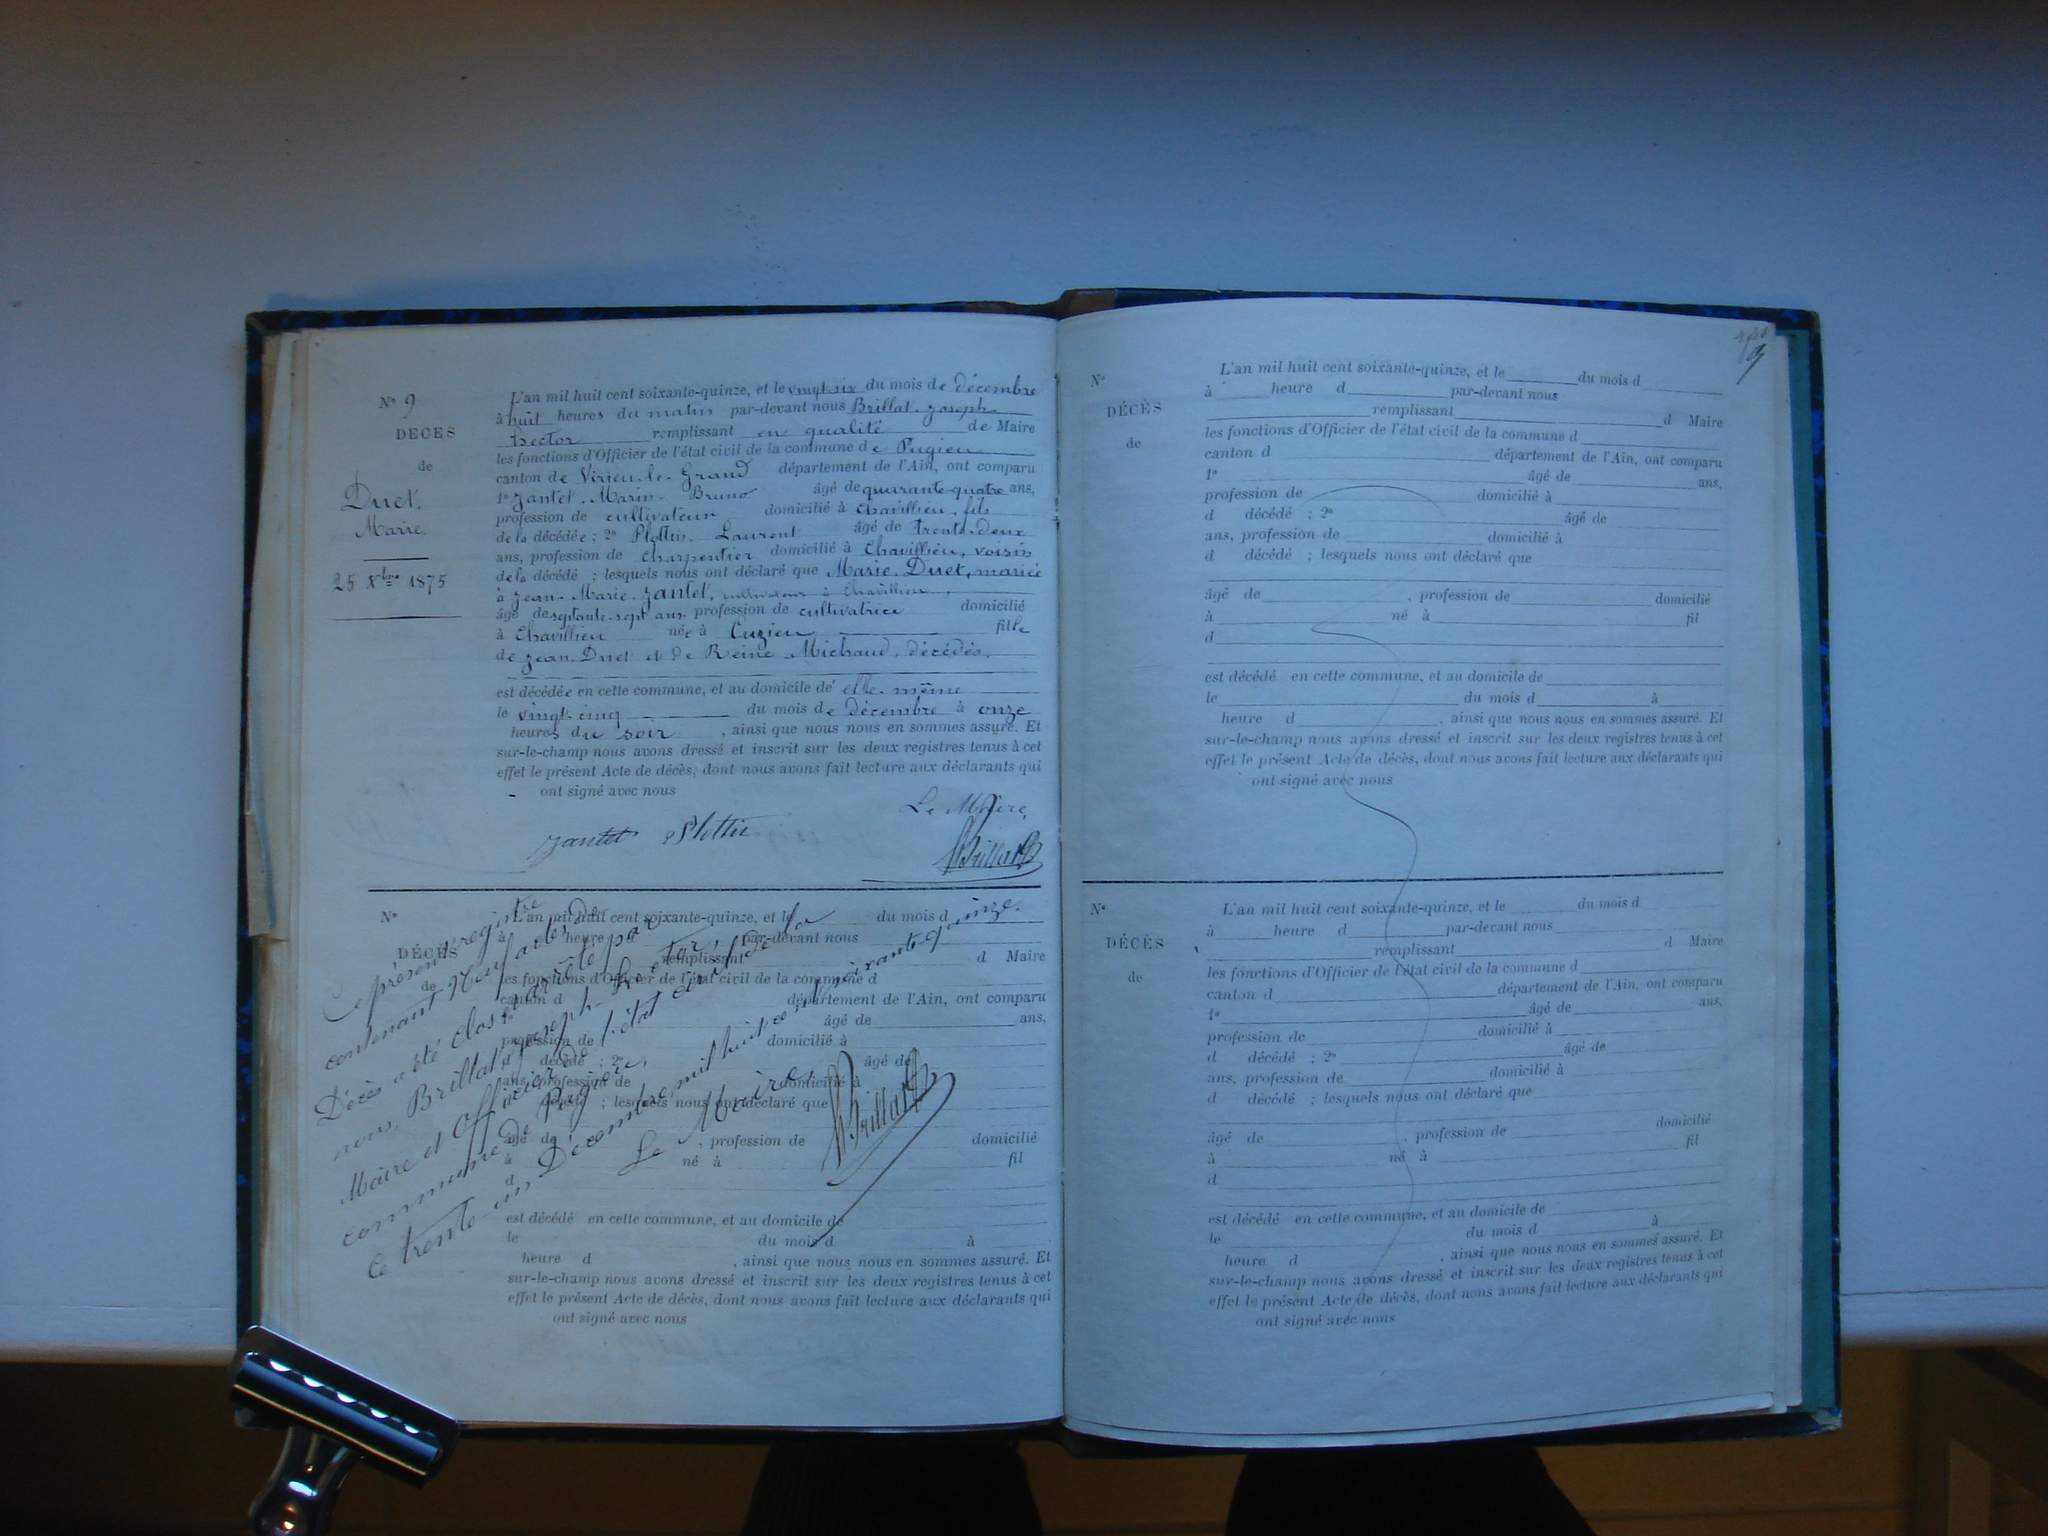 N° 9
DÉCÈS
de
Duet,
Marie.
25 Xbre 1875
L'an mil huit cent soixante-quinze, et le vingt-six du mois de décembre
à huit heures du matin par-devant nous Brillat Joseph
hector remplissant en qualité de Maire
les fonctions d'Officier de l'état civil de la commune de Pugieu
canton de Virieu-le-Grand département de l'Ain, ont comparu
1° Jantet Marin Bruno âgé de quarante-quatre ans,
profession de cultivateur domicilié à Chavillieu, fils
de la décédée ; 2° Plottin Laurent âgé de trente-deux
ans, profession de charpentier domicilié à Chavillieu, voisin
de la décédé ; lesquels nous ont déclaré que Marie Duet, mariée
à Jean-Marie Jantet, cultivateur à Chavillieu,
âgé de septante-sept ans, profession de cultivatrice domicilié
à Chavillieu née à Cuzieu fille
de Jean Duet et de Reine Michaud, décédés.
est décédée en cette commune, et au domicile de elle-même
le vingt-cinq du mois de décembre à onze
heures du soir, ainsi que nous nous en sommes assuré. Et
sur-le-champ nous avons dressé et inscrit sur les deux registres tenus à cet
effet le présent Acte de décès, dont nous avons fait lecture aux déclarants qui
ont signé avec nous
Le Maire,
Jantet Plottin
Brillat
N°
DÉCÈS
de
L'an mil huit cent soixante-quinze, et le du mois d
à heure d par-devant nous
remplissant d Maire
les fonctions d'Officier de l'état civil de la commune d
canton d département de l'Ain, ont comparu
âgé de ans,
profession de domicilié à
d décédé ; 2° âgé de
ans, profession de domicilié à
décédé ; lesquels nous ont déclaré que
âgé de , profession de domicilié
à né à fil
d
est décédé en cette commune, et au domicile de
le du mois d à
heure d , ainsi que nous nous en sommes assuré. Et
sur-le-champ nous avons dressé et inscrit sur les deux registres tenus à cet
effet le présent Acte de décès, dont nous avons fait lecture aux déclarants qui
ont signé avec nous
Ce présent registre
contenant Neuf actes de
Décès a été clos et arrêté par
nous, Brillat Joseph-hector,
Maire et Officier de l'état civil de la
commune de Pugieu,
Ce trente-un Décembre mil huit cent soixante-quinze.
Le Maire,
Brillat
N°
DÉCÈS
de
L'an mil huit cent soixante-quinze, et le du mois d
à heure d par-devant nous
remplissant d Maire
les fonctions d'Officier de l'état civil de la commune d
canton d département de l'Ain, ont comparu
1° âgé de ans,
profession de domicilié à
d décédé ; 2° âgé de
ans, profession de domicilié à
d décédé ; lesquels nous ont déclaré que
âgé de , profession de domicilié
à né à fil
d
est décédé en cette commune, et au domicile de
le du mois d à
heure d , ainsi que nous nous en sommes assuré. Et
sur-le-champ nous avons dressé et inscrit sur les deux registres tenus à cet
effet le présent Acte de décès, dont nous avons fait lecture aux déclarants qui
ont signé avec nous
N°
DÉCÈS
de
L'an mil huit cent soixante-quinze, et le du mois d
à heure d par-devant nous
remplissant d Maire
les fonctions d'Officier de l'état civil de la commune d
canton d département de l'Ain, ont comparu
1° âgé de ans,
profession de domicilié à
d décédé ; 2° âgé de
ans, profession de domicilié à
d décédé ; lesquels nous ont déclaré que
âgé de , profession de domicilié
à né à fil
d
est décédé en cette commune, et au domicile de
le du mois d à
heure d , ainsi que nous nous en sommes assuré. Et
sur-le-champ nous avons dressé et inscrit sur les deux registres tenus à cet
effet le présent Acte de décès, dont nous avons fait lecture aux déclarants qui
ont signé avec nous